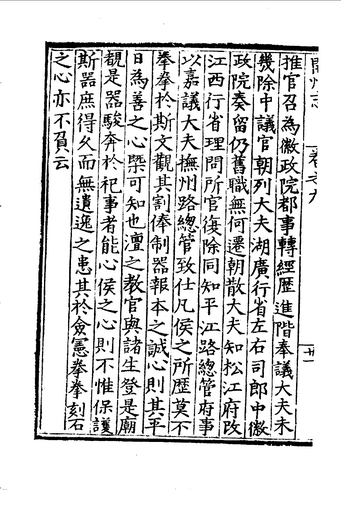 推官召為徽政院都事轉經歷進階奉議大夫未
幾除中議官朝列大夫湖廣行省左右司郎中徽
政院奏留仍舊職無何遷朝散大夫知松江府改
江西行省理問所官復除同知平江路總管府事
以嘉議大夫撫州路總管致仕凡侯之所歷莫不
拳拳於斯文觀其割俸制器報本之誠心則其平
日為善之心槩可知也澶之教官與諸生登是廟
覩是器駿奔於祀事者能心侯之心則不惟保護
斯器庶得久而無遺逸之患其於僉憲拳拳刻石
之心亦不負云